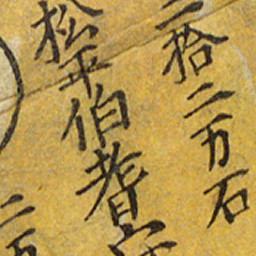 二拾二万石
松平伯耆守
二万